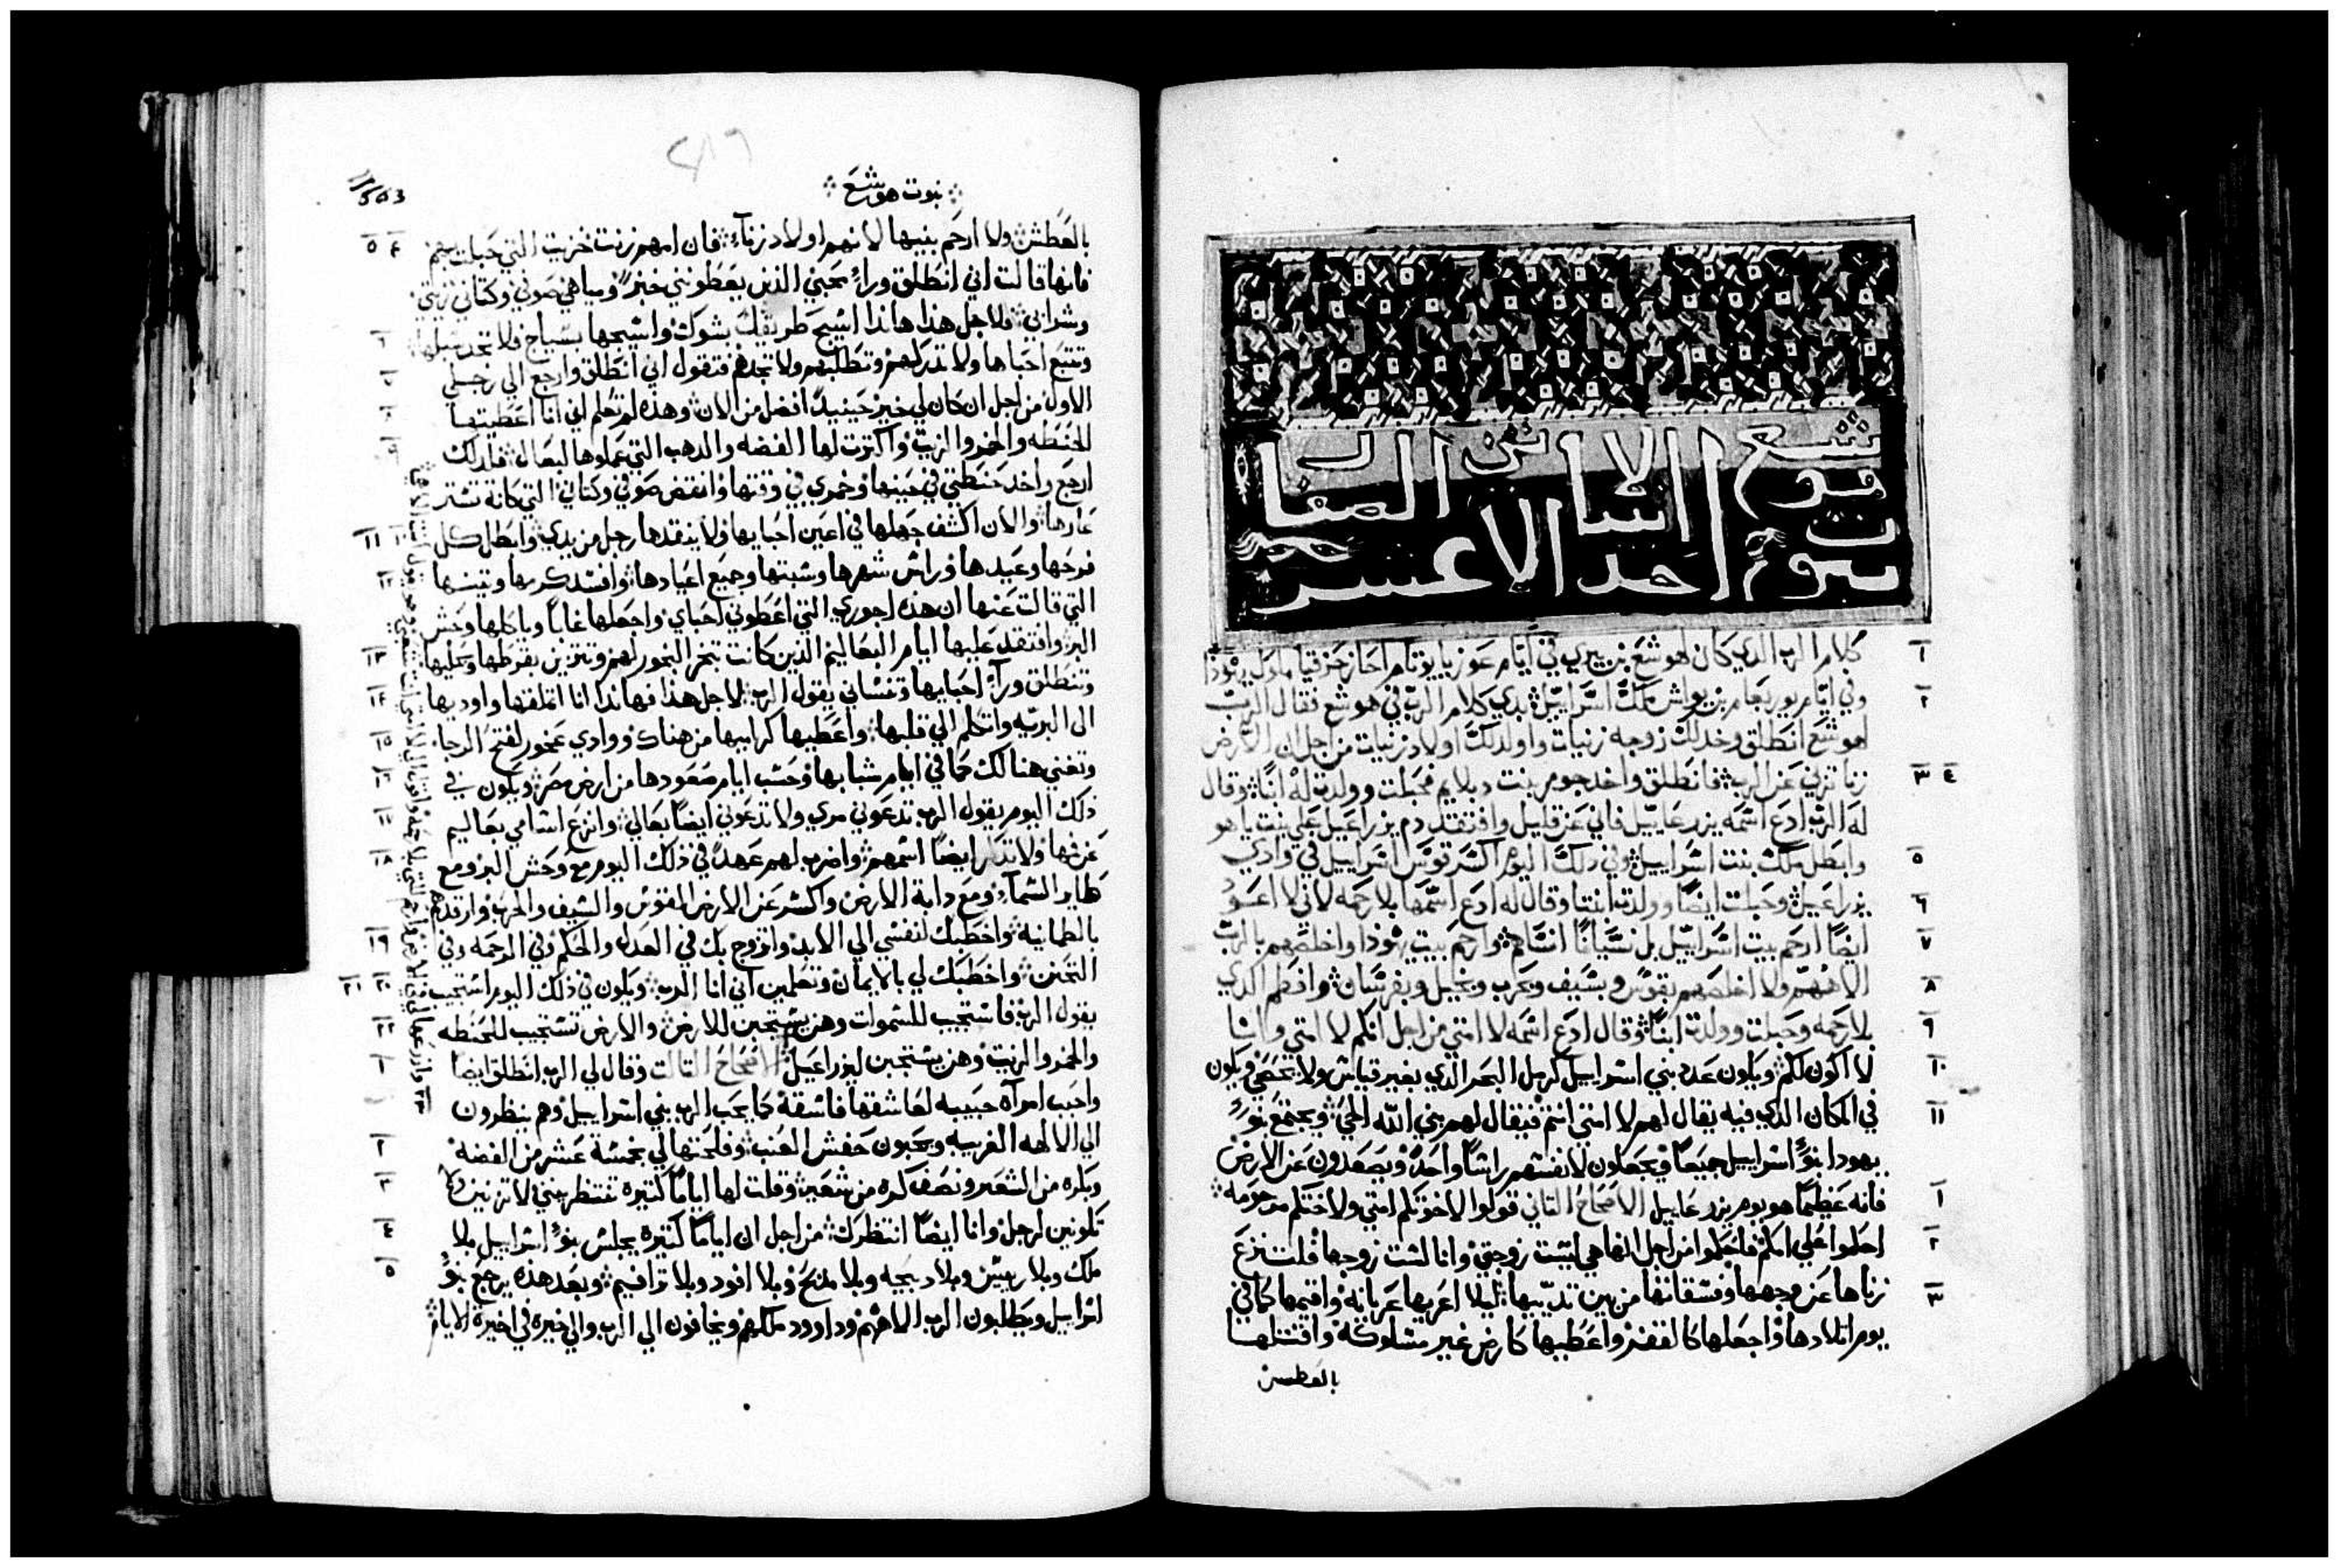 نبوت هوشع
الاصاحات
احد الاعشر
١ كلام الرب الدي كان لهوشع بن بيري في ايام عوزيا يوتام احاز حزقيا ملوك يهوذا
٢ وفي ايام يوربعام بن يواش ملك اسراييل بدي كلام الرب في هوشع فقال الرب
لهوشع انطلق وخد لك زوجه زنيات واولد لك اولاد زنيات من اجل ان الارض
٣ ٤ زنا تزني عن الرب فانطلق واخد جومر بنت دبلايم فحبلت وولدت له ابنا وقال
له الرب ادع اسمه يزرعاييل فاني عن قليل وافتقد دم يزراعيل علي بيت ياهو
٥ وابطل ملك بيت اسراييل وفي دلك اليوم اكسر قوس اسراييل في وادي
٦ يزراعيل وحبلت ايضا وولدت ابنتا وقال له ادع اسمها بلا رحمه لاني لا اعود
٧ ايضا ارحم بيت اسراييل بل نسيانا انساهم وارحم بيت يهودا واخلصهم بالرب
٨ الاههم ولا اخلصهم بقوس وبسيف وبحرب وبخيل وبفرسان وافطم الدي
٩ بلا رحمه وحبلت وولدت ابنا وقال ادع اسمه لا امتي من اجل انكم لا امتي وانا
١٠ لا اكون لكم ويكون عدد بني اسراييل كرمل البحر الدي بغير قياس ولا يحصي ويكون
١١ في المكان الدي فيه يقال لهم لا امتي انتم فيقال لهم بني الله الحي ويجتمع بنو
يهودا بنو اسراييل جميعا ويجعلون لانفسهم راسا واحدا ويصعدون عن الارض
١ فانه عظيما هو يوم يزرعاييل الاصحاح التاني قولوا لاخوتكم امتي ولاختكم مرحومه
٢ احكموا علي امكم فاحكموا من اجل انها هي ليست زوجتي وانا لست زوجها فلتنزع
٣ زناها عن وجهها وفسقاتها من بين تدييها ليلا اعريها عريانه واقيمها كما في
يوم اتلادها واجعلها كالقفر واعطيها كارض غير مسلوكه واقتلها
بالعطش
نبوت هوشع
563
٤ ٥ بالعطش ولا ارحم بنيها لانهم اولاد زناء فان امهم زنت خزيت التي حبلت بهم
فانها قالت اني انطلق وراء محبي الذين يعطونني خبزي ومياهي صوفي وكتاني زيتي
٦ وشرابي فلاجل هذا هانذا اسيج طريقك بشوك واسيجها بسياج فلا تجد سبلها
٧ وتتبع احباها ولا تدركهم وتطلبهم ولا تجدهم فتقول اني انطلق وارجع الي رجلي
٨ الاول من اجل ان كان لي خير حينيد افضل من الان وهذه لم تعلم اني انا اعطيتها
٩ الحنطه والخمر والزيت واكترت لها الفضه والدهب التي عملوها لبعال فلدلك
ارجع واخد حنطتي في حينها وخمري في وقتها وانقض صوفي وكتاني التي كانة تستر
١٠ ١١ عارها والان اكشف جهلها في اعين احبايها ولا ينقدها رجل من يدي وابطل كل
١٢ فرحها وعيدها وراس شهرها وسبتها وجميع اعيادها وافسد كرمها وتينها
التي قالت عنها ان هذه اجوري التي اعطوني احباي واجعلها غابا وياكلها وحش
١٣ البر وافتقد عليها ايام البعاليم الدين كانت تبخر البخور لهم وتتزين بقرطها وحليها
١٤ وتنطلق وراء احبايها وتنساني يقول الرب لاجل هذا فهاندا انا اتملقها واوديها
١٥ الى البريه واتكلم الي قلبها واعطيها كراميها من هناك ووادي عخور لفتح الرجا
١٦ وتغني هنالك كما في ايام شبابها وحسب ايام صعودها من ارض مصر ويكون في
١٧ دلك اليوم يقول الرب تدعوني مري ولا تدعوني ايضا بعالي وانزع اسامي بعاليم
١٨ عن فيها ولا تذكر ايضا اسمهم واضرب لهم عهدا في ذلك اليوم مع وحش البر ومع
طاير السماء ومع دابة الارض واكسر عن الارض القوس والسيف والحرب وارقدهم
١٩ بالطمانينه واخطبك لنفسي الي الابد واتزوج بك في العدل والحكم وفي الرحمه وفي
٢٠ ٢١ التحنن واخطبك لي بالايمان وتعلمين اني انا الرب ويكون في ذلك اليوم استجيب
٢٢ يقول الرب فاستجيب للسموات وهن يستجبن للارض والارض تستجيب للحنطه
١ والخمر والزيت وهن يستجبن ليزراعيل الاصحاح التالت وقال لي الرب انطلق ايضا
واحبب امرآة حبيبه لعاشقها فاسقة كما يحب الرب بني اسراييل وهم ينظرون
٢ الي الالهه الغريبه ويحبون حفش العنب وفلحتها لي بخمسة عشر من الفضه
٣ وبكره من الشعير ونصف كره من شعير وقلت لها اياما كتيره تنتظرينني لا تزنين ولا
٤ تكونين لرجل وانا ايضا انتظرك من اجل ان اياما كتيره يجلس بنو اسراييل بلا
٥ ملك وبلا رييس وبلا دبيحه وبلا مدبح وبلا افود وبلا ترافيم وبعد هذه يرجع بنو
اسراييل ويطلبون الرب الاههم وداوود ملكهم ويخافون الي الرب والي خيره في اخيرة الايام
٢٣ وازرعها لي في الارض وارحم التي بلا رحمه واقول الي لا امتي انت شعبي وهو يقول انت الاهي